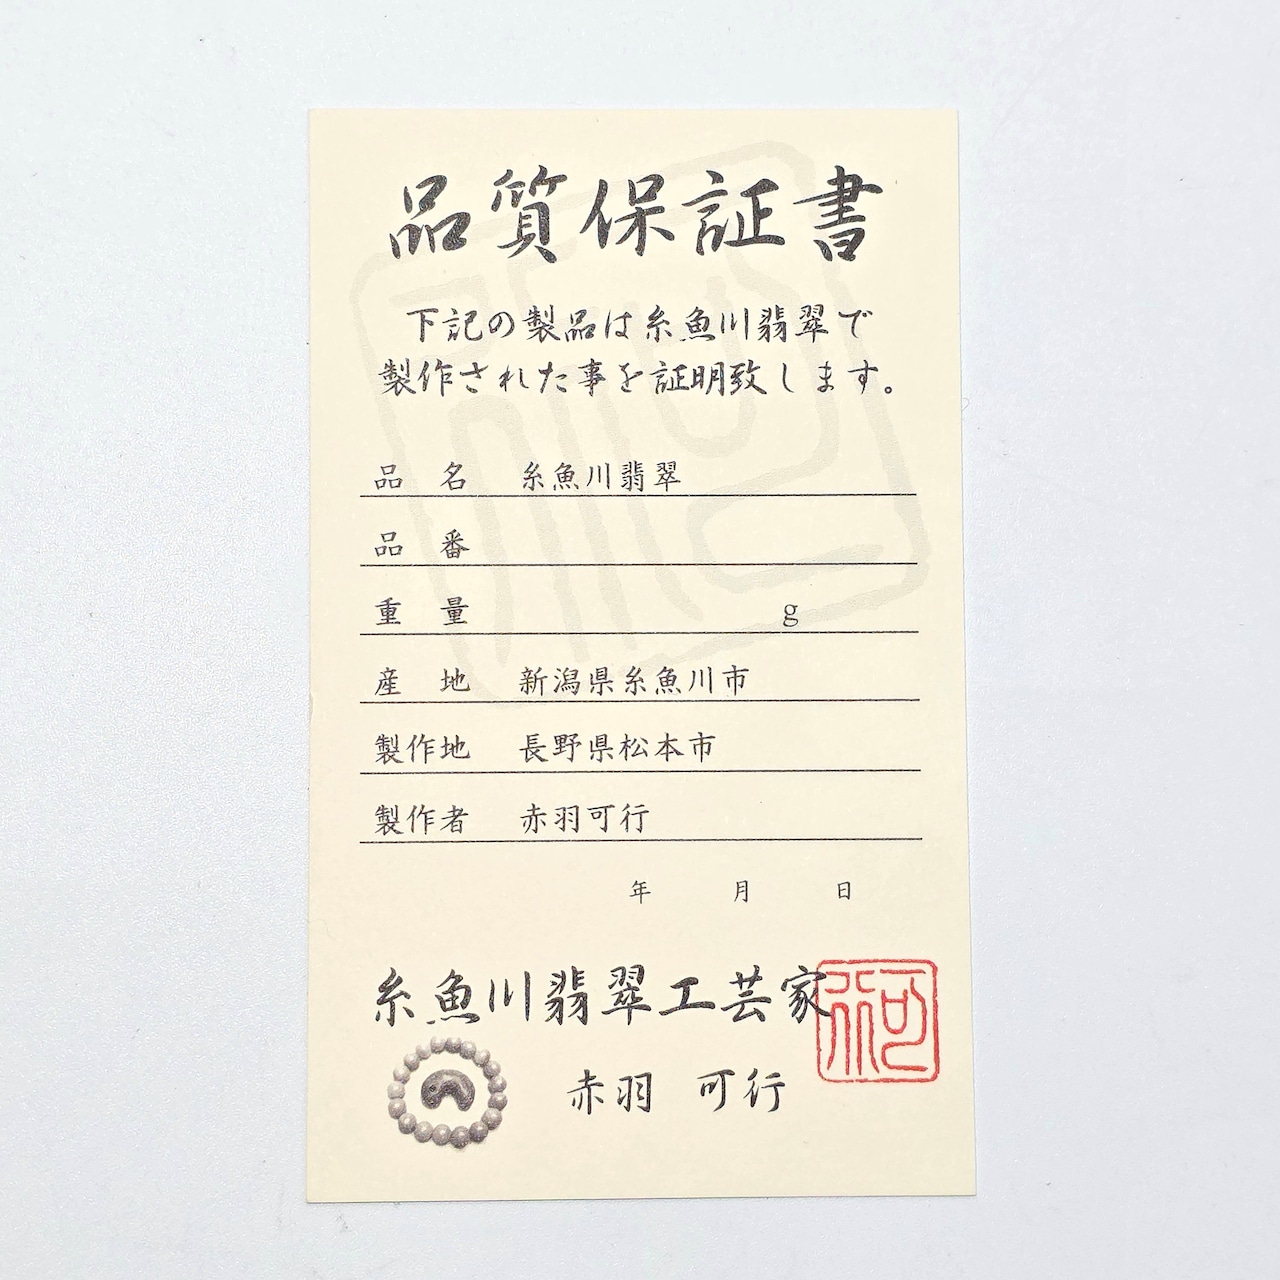 品質保証書
下記の製品は糸魚川翡翠で
製作された事を証明致します。
品 名 糸魚川翡翠
品 番
重 量 g
産 地 新潟県糸魚川市
製作地 長野県松本市
製作者 赤羽可行
年 月 日
糸魚川翡翠工芸家
赤羽 可行
可行